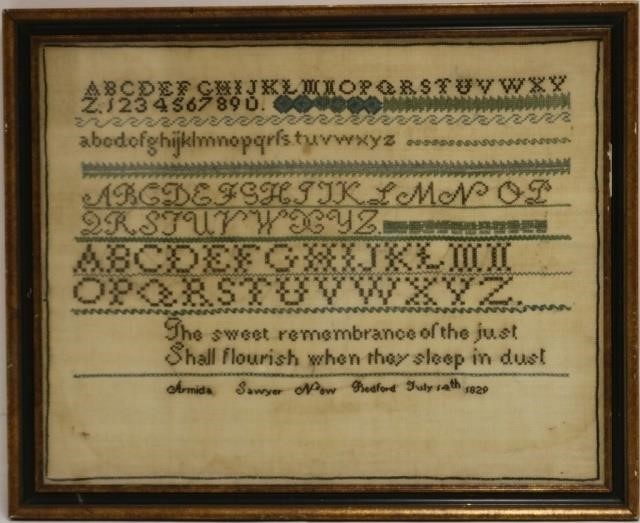 ABCDEFGHIJKLMNOPQRSTUVWXY
Z.1234567890.
abcdefghijklmnopqrſs.tuvwxyz
ABCDEFGHIJKLMNOP
QRSTUVWXYZ
ABCDEFGHIJKLMN
OPQRSTUVWXYZ.
The sweet remembrance of the just
Shall flourish when they sleep in dust
Armida Sawyer New Bedford July 14th 1829